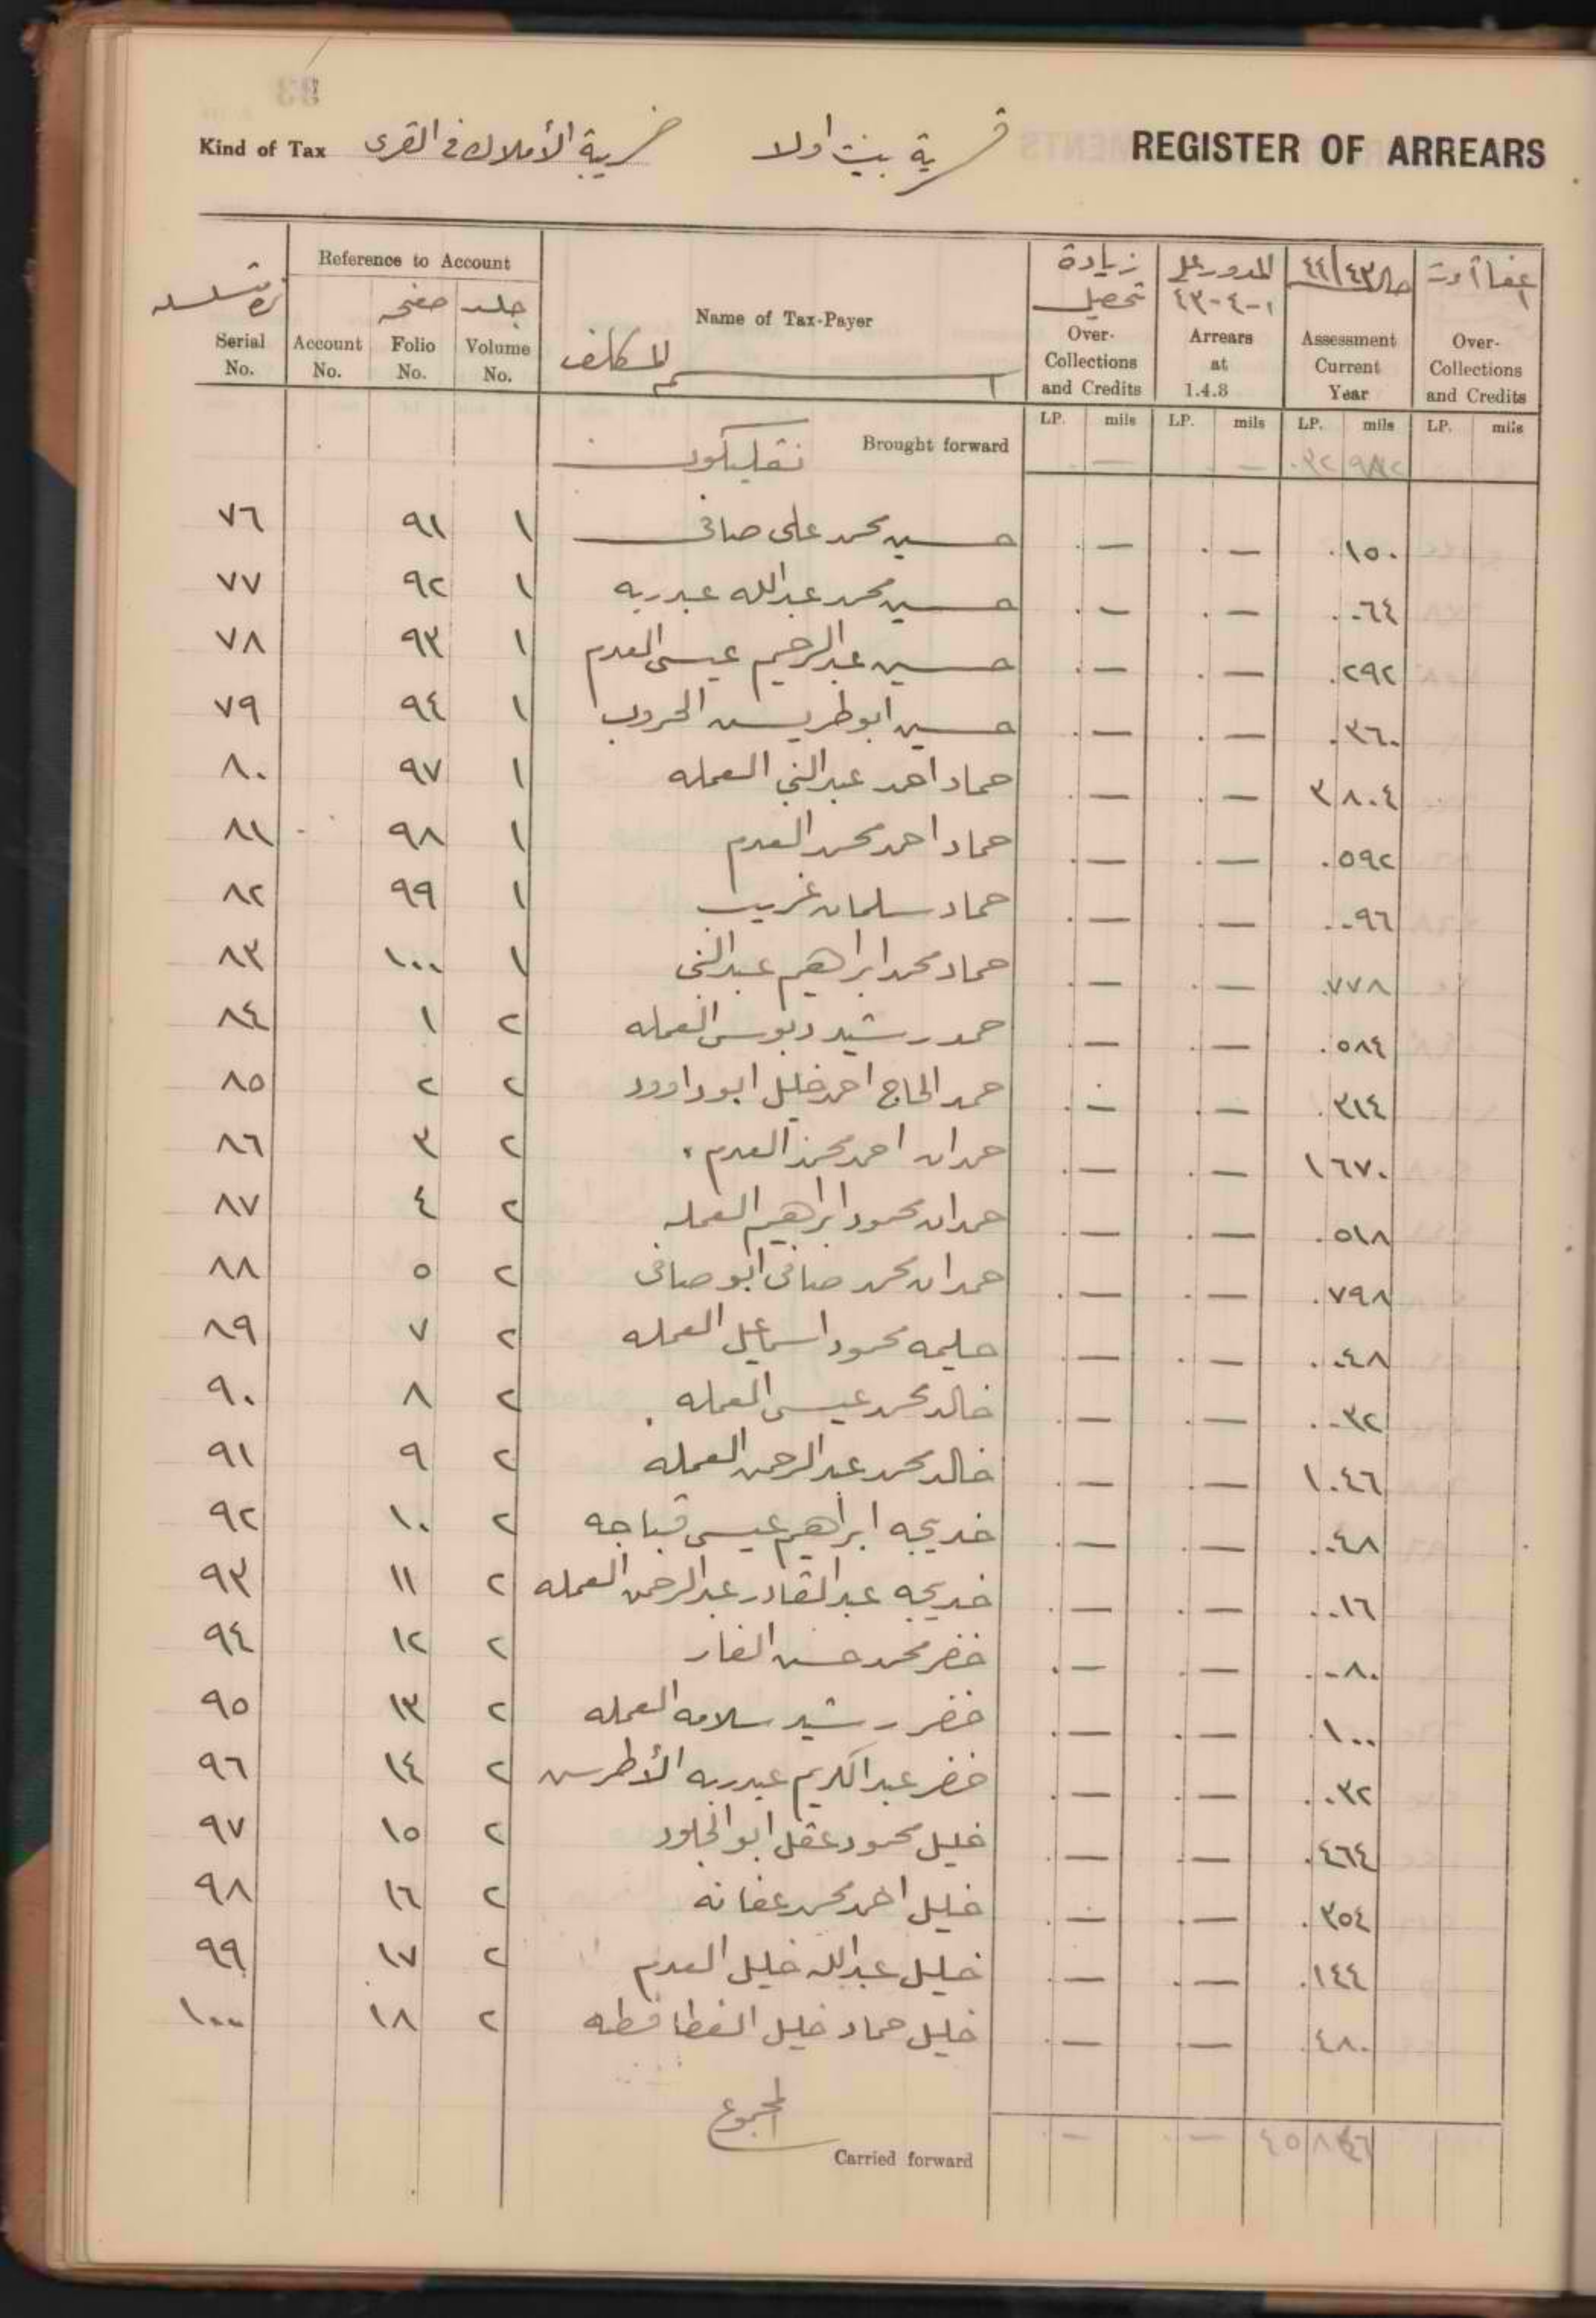 Kind of Tax ضريبة الأملاك في القرى قرية بيت اولا REGISTER OF ARREARS
Reference to Account
زيادة تحصيل المدور على ١-٤-٤٣ ٤٤/٤٣
صفحه جلد
Serial No. Account No. Folio No. Volume No. Name of Tax-Payer المكلف Over-Collections and Credits Arrears at 1.4.3 Assessment Current Year Over-Collections and Credits
LP. mils LP. mils LP. mils LP. mils
Brought forward — —
٧٦ ٩١ ١ حسين محمد علي صافي — — ٠١٥٠
٧٧ ٩٢ ١ حسين محمد عبدالله عبدربه — — ٠٠٦٤
٧٨ ٩٣ ١ حسين عبدالرحيم عيسى العدم — — ٠٢٩٢
٧٩ ٩٤ ١ حسين ابوطريس الحروب — — ٠٣٦٠
٨٠ ٩٧ ١ حماد احمد عبدالنبي العمله — — ٣٨٠٤
٨١ ٩٨ ١ حماد احمد محمد العدم — — ٠٥٩٢
٨٢ ٩٩ ١ حماد سلمان غريب — — ٠٠٩٦
٨٣ ١٠٠ ١ حماد محمد ابراهيم عبدالنبي — — ٠٧٧٨
٨٤ ١ ٢ حمد رشيد دبوس العمله — — ٠٥٨٤
٨٥ ٢ ٢ حمد الحاج احمد خليل ابوداوود — — ٠٣١٤
٨٦ ٣ ٢ حمدان احمد محمد العدم — — ١٦٧٠
٨٧ ٤ ٢ حمدان محمود ابراهيم العمله — — ٠٥١٨
٨٨ ٥ ٢ حمدان محمد صافي ابو صافي — — ٠٧٩٨
٨٩ ٧ ٢ حليمه محمود اسماعيل العمله — — ٠٠٤٨
٩٠ ٨ ٢ خالد محمد عيسى العمله — — ٠٠٣٢
٩١ ٩ ٢ خالد محمد عبدالرحمن العمله — — ١٠٤٦
٩٢ ١٠ ٢ خديجه ابراهيم عيسى قباجه — — ٠٠٤٨
٩٣ ١١ ٢ خديجه عبدالقادر عبدالرحمن العمله — — ٠٠١٦
٩٤ ١٢ ٢ خضر محمد حسن الفار — — ٠٠٨٠
٩٥ ١٣ ٢ خضر رشيد سلامه العمله — — ٠١٠٠
٩٦ ١٤ ٢ خضر عبدالكريم عبدربه الأطرس — — ٠٠٣٢
٩٧ ١٥ ٢ خليل محمود عقل ابو الجلود — — ٠٤٦٤
٩٨ ١٦ ٢ خليل احمد محمد عفانه — — ٠٣٥٤
٩٩ ١٧ ٢ خليل عبدالله خليل العدم — — ٠١٤٤
١٠٠ ١٨ ٢ خليل حماد خليل القطافطه — — ٠٤٨٠
المجموع
Carried forward — —